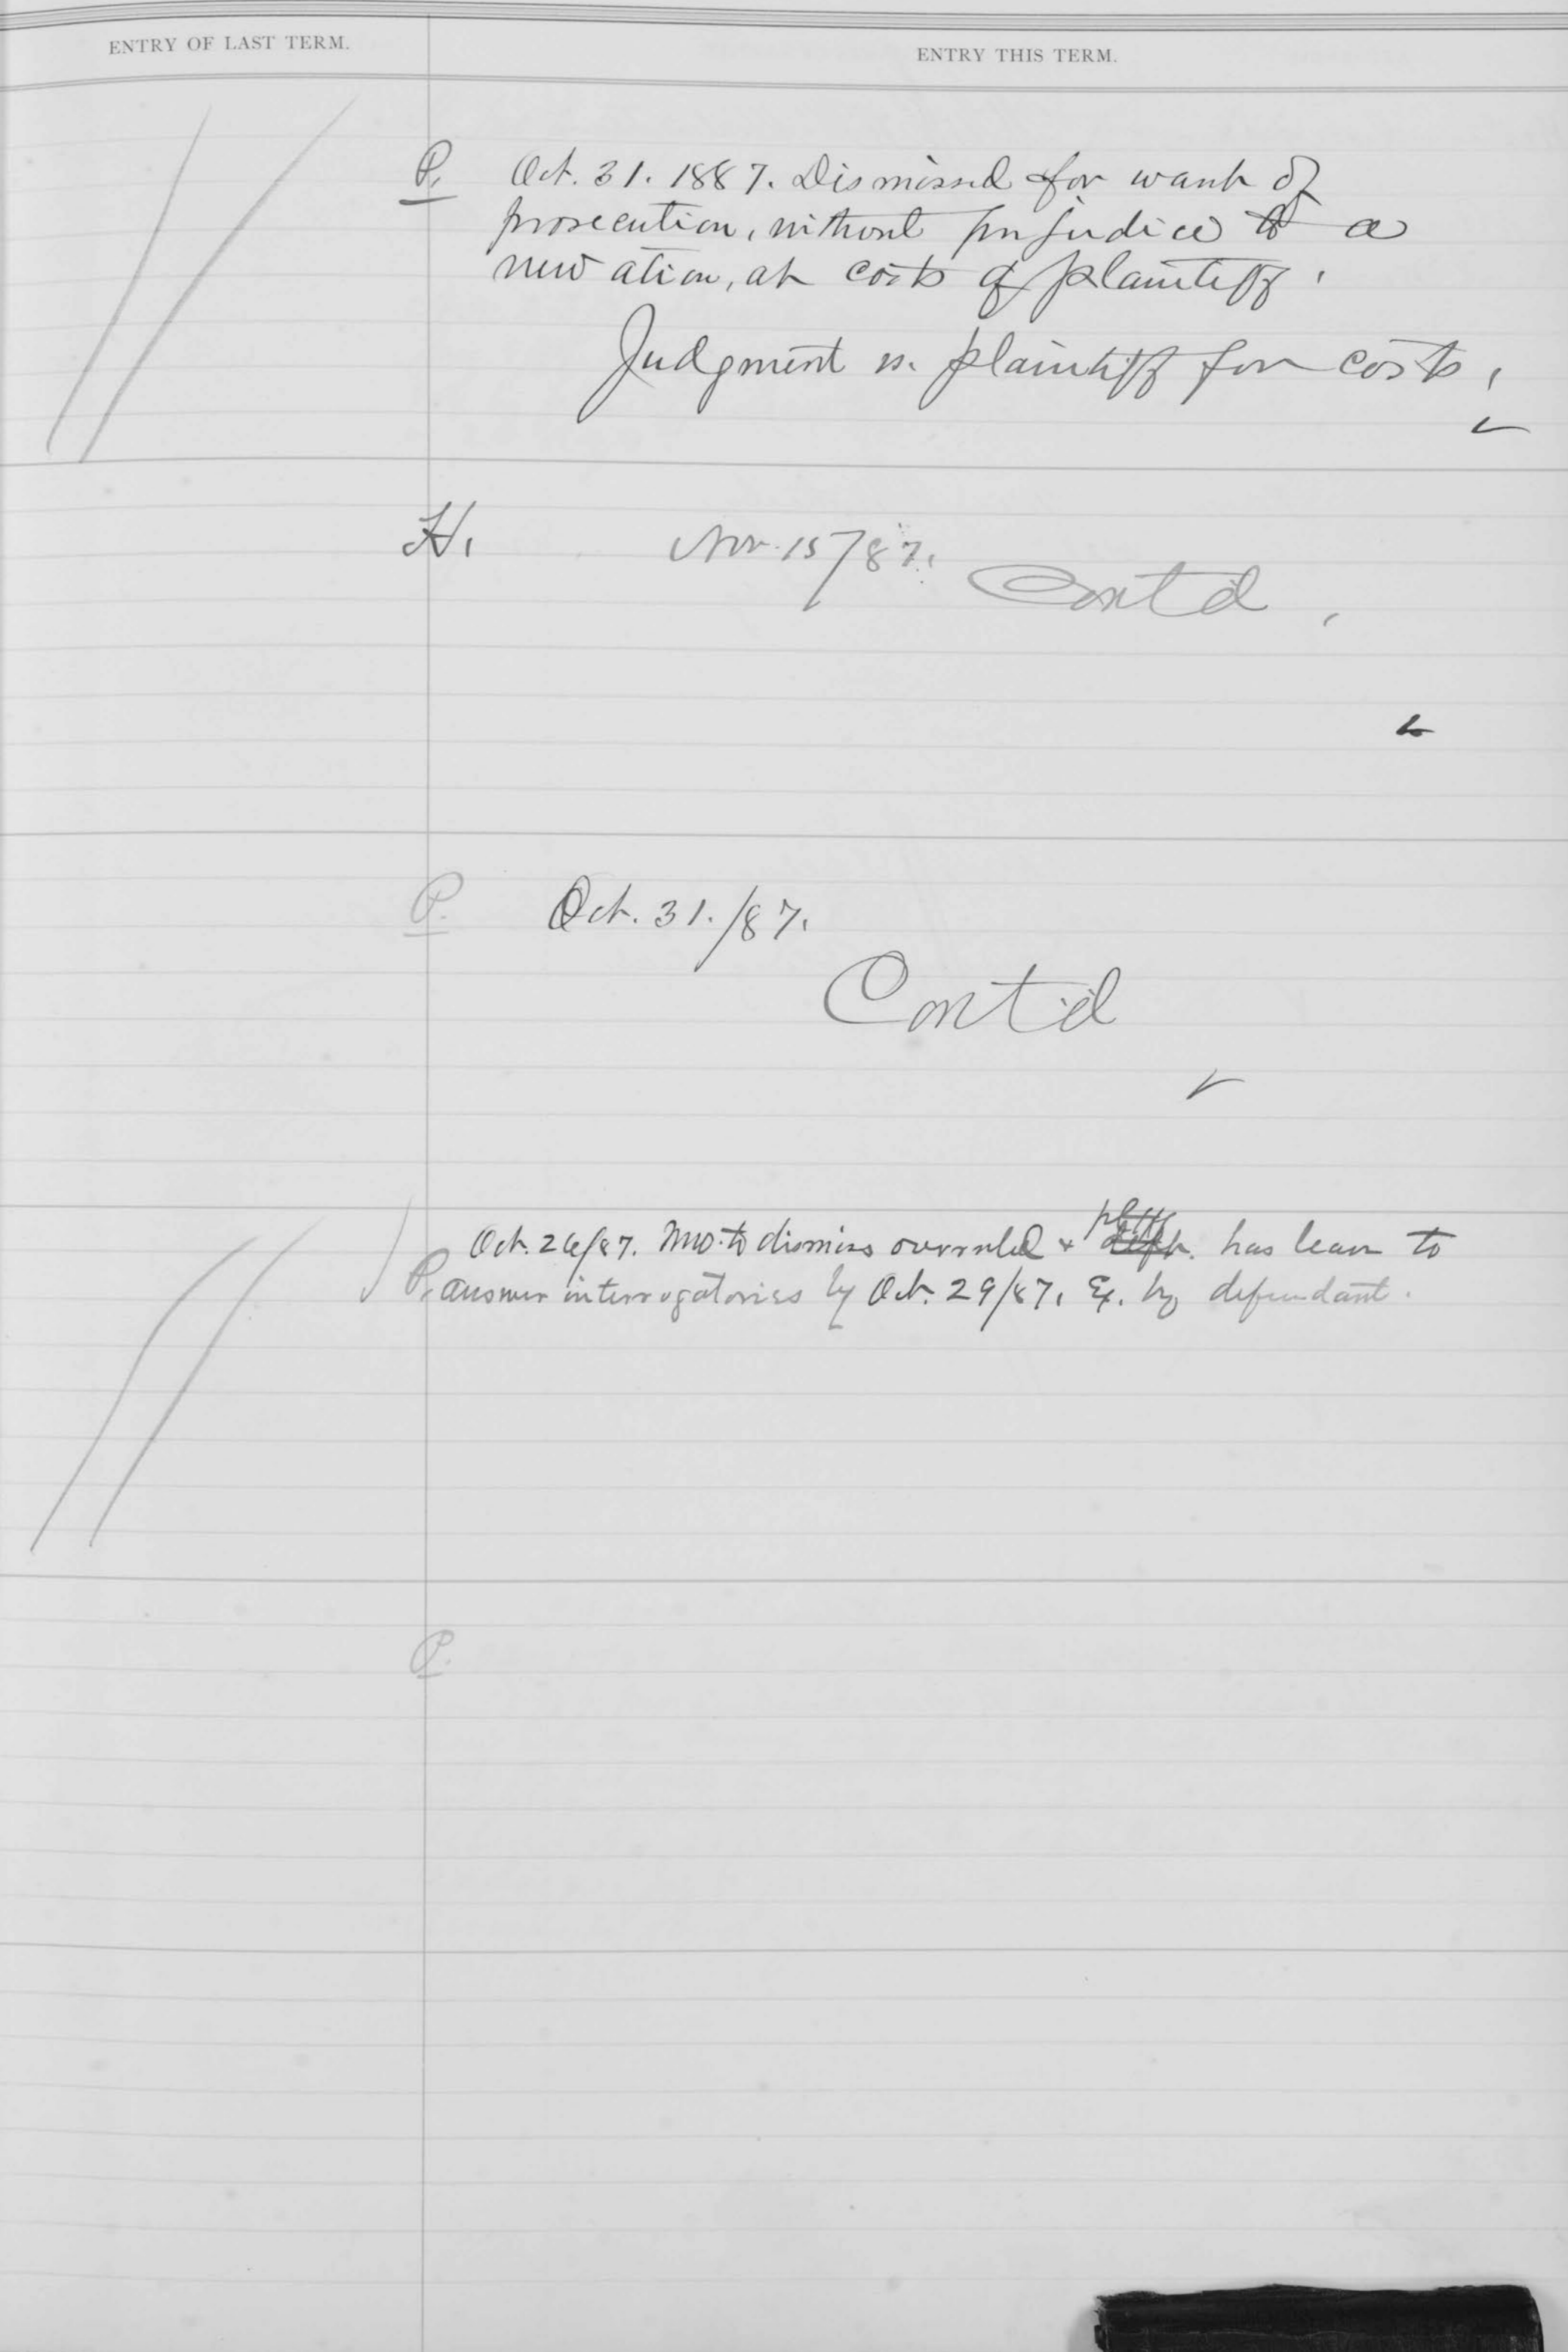 ENTRY OF LAST TERM.
ENTRY THIS TERM.
P. Oct. 31. 1887. Dismissed for want of
prosecution, without prejudice to a
new ation, at costs of plaintiff.
Judgment vs. plaintiff for costs.
H. Nov. 15/87.
Cont'd.
P. Oct. 31./87.
Cont'd
pltff
Oct. 26/87. Mo. to dismiss overruled & deft. has leave to
P. answer interrogatories by Oct. 29/87. Ex. by defendant.
P.